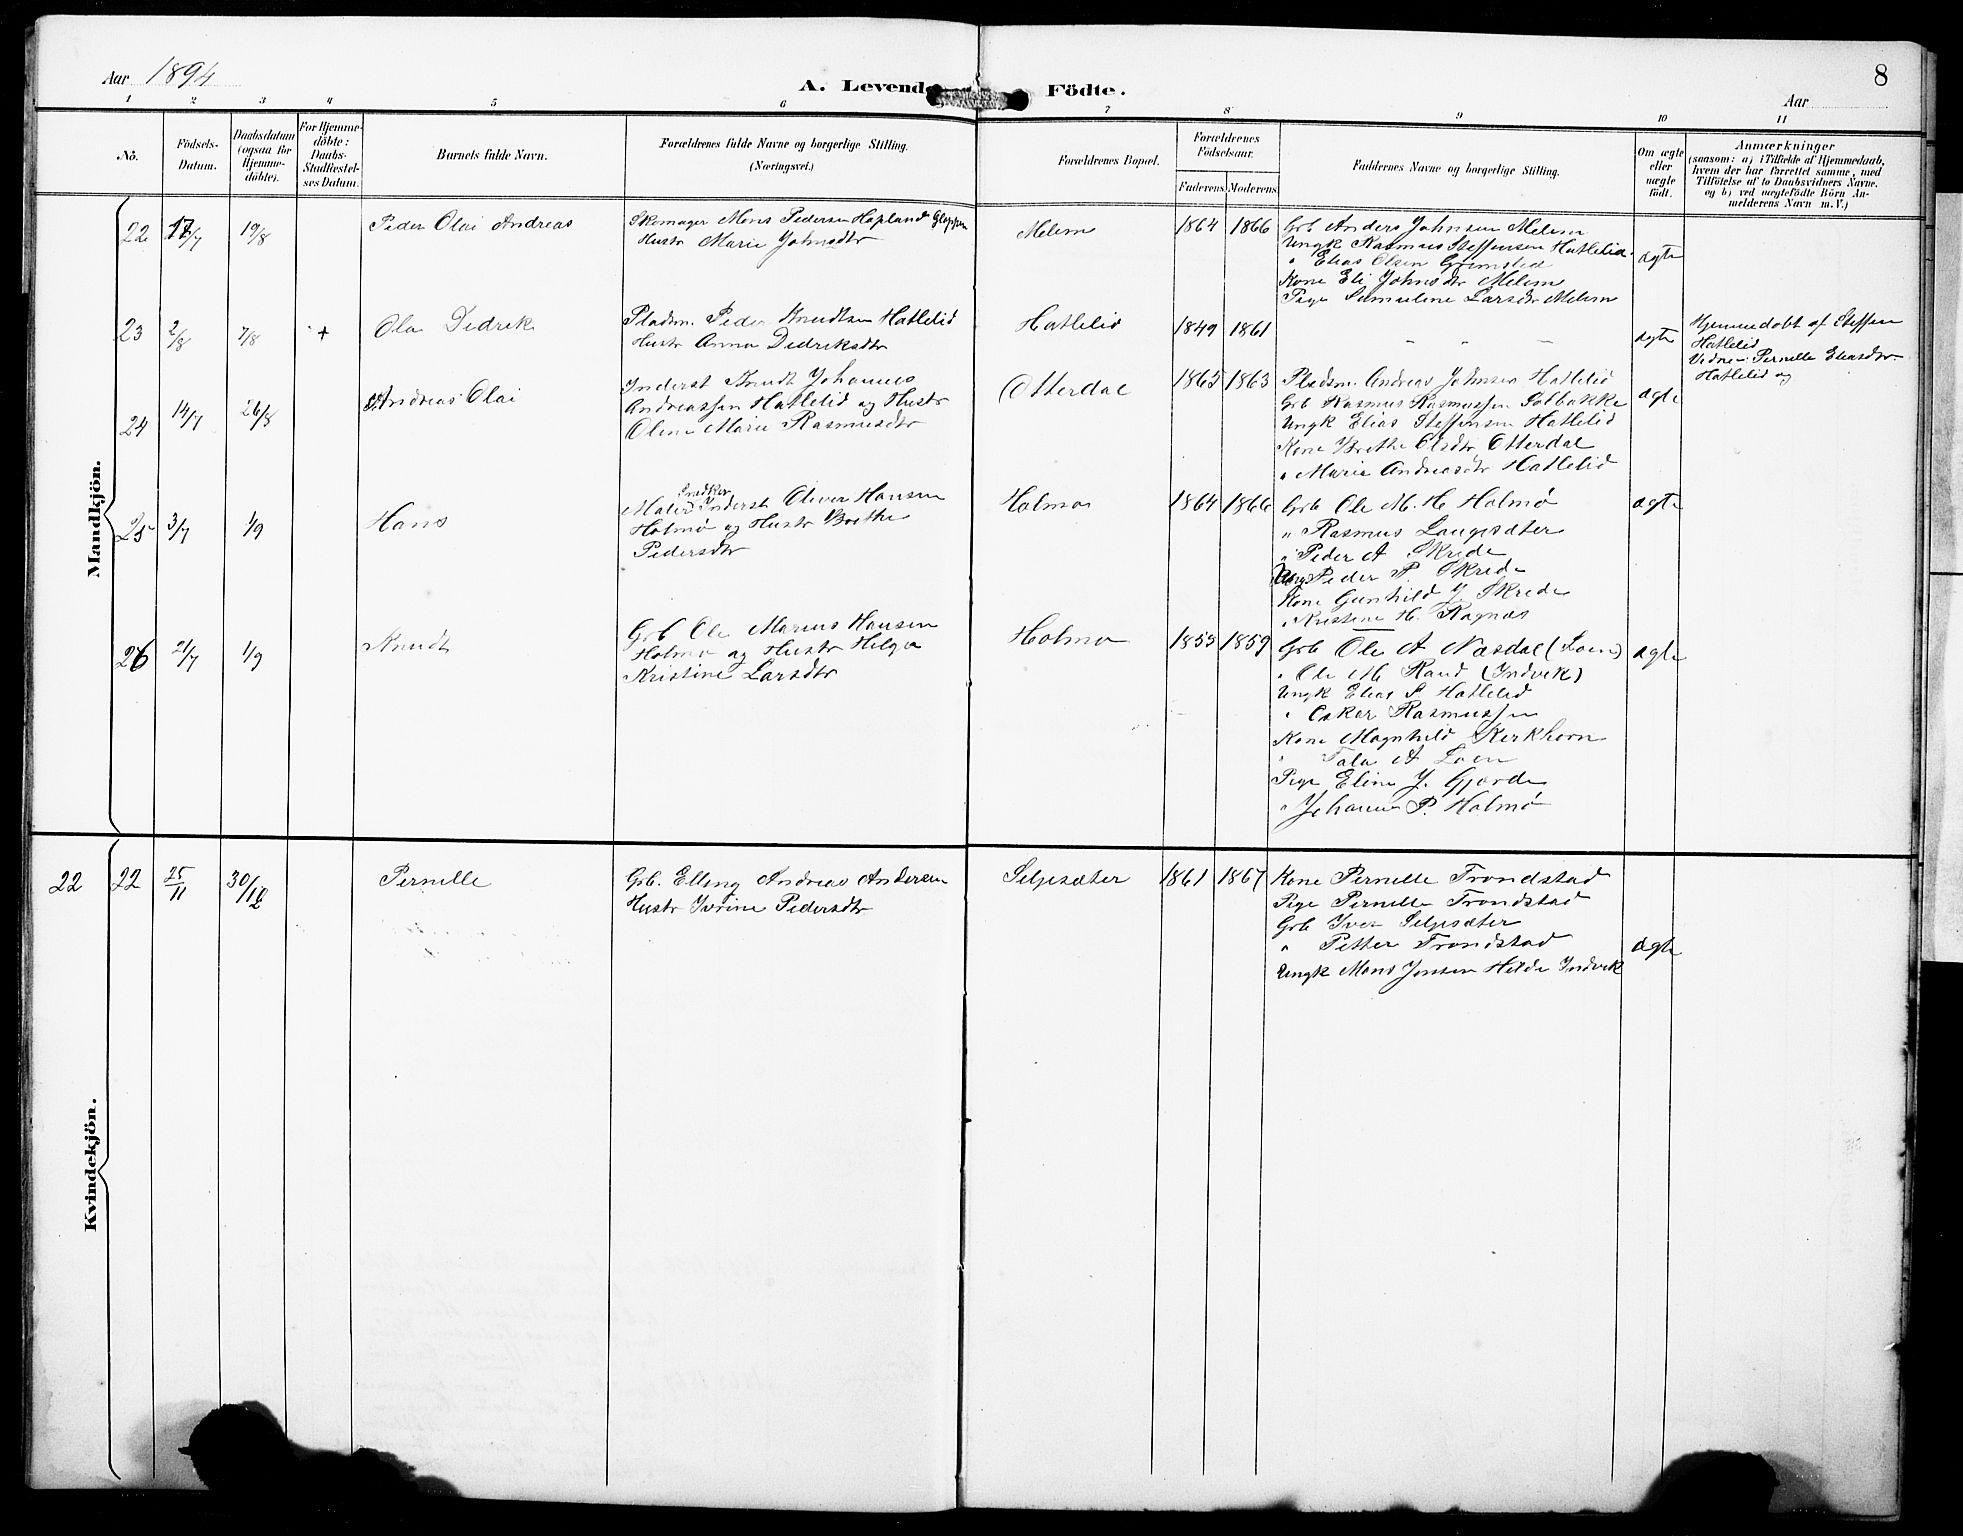 Aar 1894
A. Levende Födte.
8
Aar
1 2 3 4 5 6 7 8 9 10 11
No.
Födsels-Datum.
Daabsdatum (ogsaa for Hjemme-döbte).
For Hjemme-döbte: Daabs-Stadfæstel-ses Datum.
Barnets fulde Navn.
Forældrenes fulde Navne og borgerlige Stilling.
(Næringsvei.)
Forældrenes Bopæl.
Forældrenes Födselsaar.
Faderens Moderens
Faddernes Navne og borgerlige Stilling.
Om ægte eller uægte födt.
Anmærkninger
(saasom: a) i Tilfælde af Hjemmedaab,
hvem der har forrettet samme, med
Tilföielse af to Daabsvidners Navne.
og b) ved uægtefödte Börn An-
melderens Navn m. V.)
Mandkjön.
22 17/7 19/8 Peder Olai Andreas
Skomager Mons Pedersen Hopland Gloppen
Hustr Marie Johnsdtr
Melem 1864 1866
Grb Anders Johnsen Melem
Ungk Rasmus Steffensen Hatlelid
" Elias Olsen Grimstad
Kone Eli Johnsdtr Melem
Pige Samueline Larsdtr Melem
ægte
23 2/8 7/8 + Ola Didrik
Pladsm. Peder Knudtsen Hatlelid
Hustr Anna Didriksdtr
Hatlelid 1849 1861
– – –
ægte
Hjemmedøbt af Steffen
Hatlelid
Vidne: Pernille Eliasdtr
Hatlelid og
24 14/7 26/8 Andreas Olai
Inderst Knudt Johannes
Andreassen Hatlelid og Hustr
Oline Marie Rasmusdtr
Otterdal 1865 1863
Pladsm. Andreas Johnsen Hatlelid
Grb Rasmus Rasmussen Solbakke
Ungk Elias Steffensen Hatlelid
Kone Brithe Olsdtr Otterdal
" Marie Andreasdtr Hatlelid
ægte
25 3/7 1/9 Hans
Snedker
Maler Inderst Oliver Hansen
Holmø og Hustr Brithe
Pedersdtr
Holmø 1864 1866
Grb Ole M. H. Holmø
" Rasmus Langesæter
" Peder A Skrede
Ung Peder P. Skrede
Kone Gunhild J. Skrede
" Kristine H. Ragnæs
ægte
26 21/7 1/9 Knudt
Grb Ole Marius Hansen
Holmø og Hustr Helga
Kristine Larsdtr
Holmø 1855 1859
Grb Ole A Næsdal (Loen)
" Ole M Rand (Indvik)
Ungk Elias S. Hatlelid
" Oskar Rasmussen
Kone Magnhild Kirkhorn
" Tala A Loen
Pige Eline J. Gjørde
" Johanne P. Holmø
ægte
Kvindekjön.
22 22 25/11 30/12 Pernille
Grb. Elling Andreas Andersen
Hustr Ivrine Pedersdtr
Seljesæter 1861 1867
Kone Pernille Trondstad
Pige Pernille Trondstad
Grb Iver Seljesæter
" Petter Trondstad
Ungk Mons Jensen Hilde Indvik
ægte